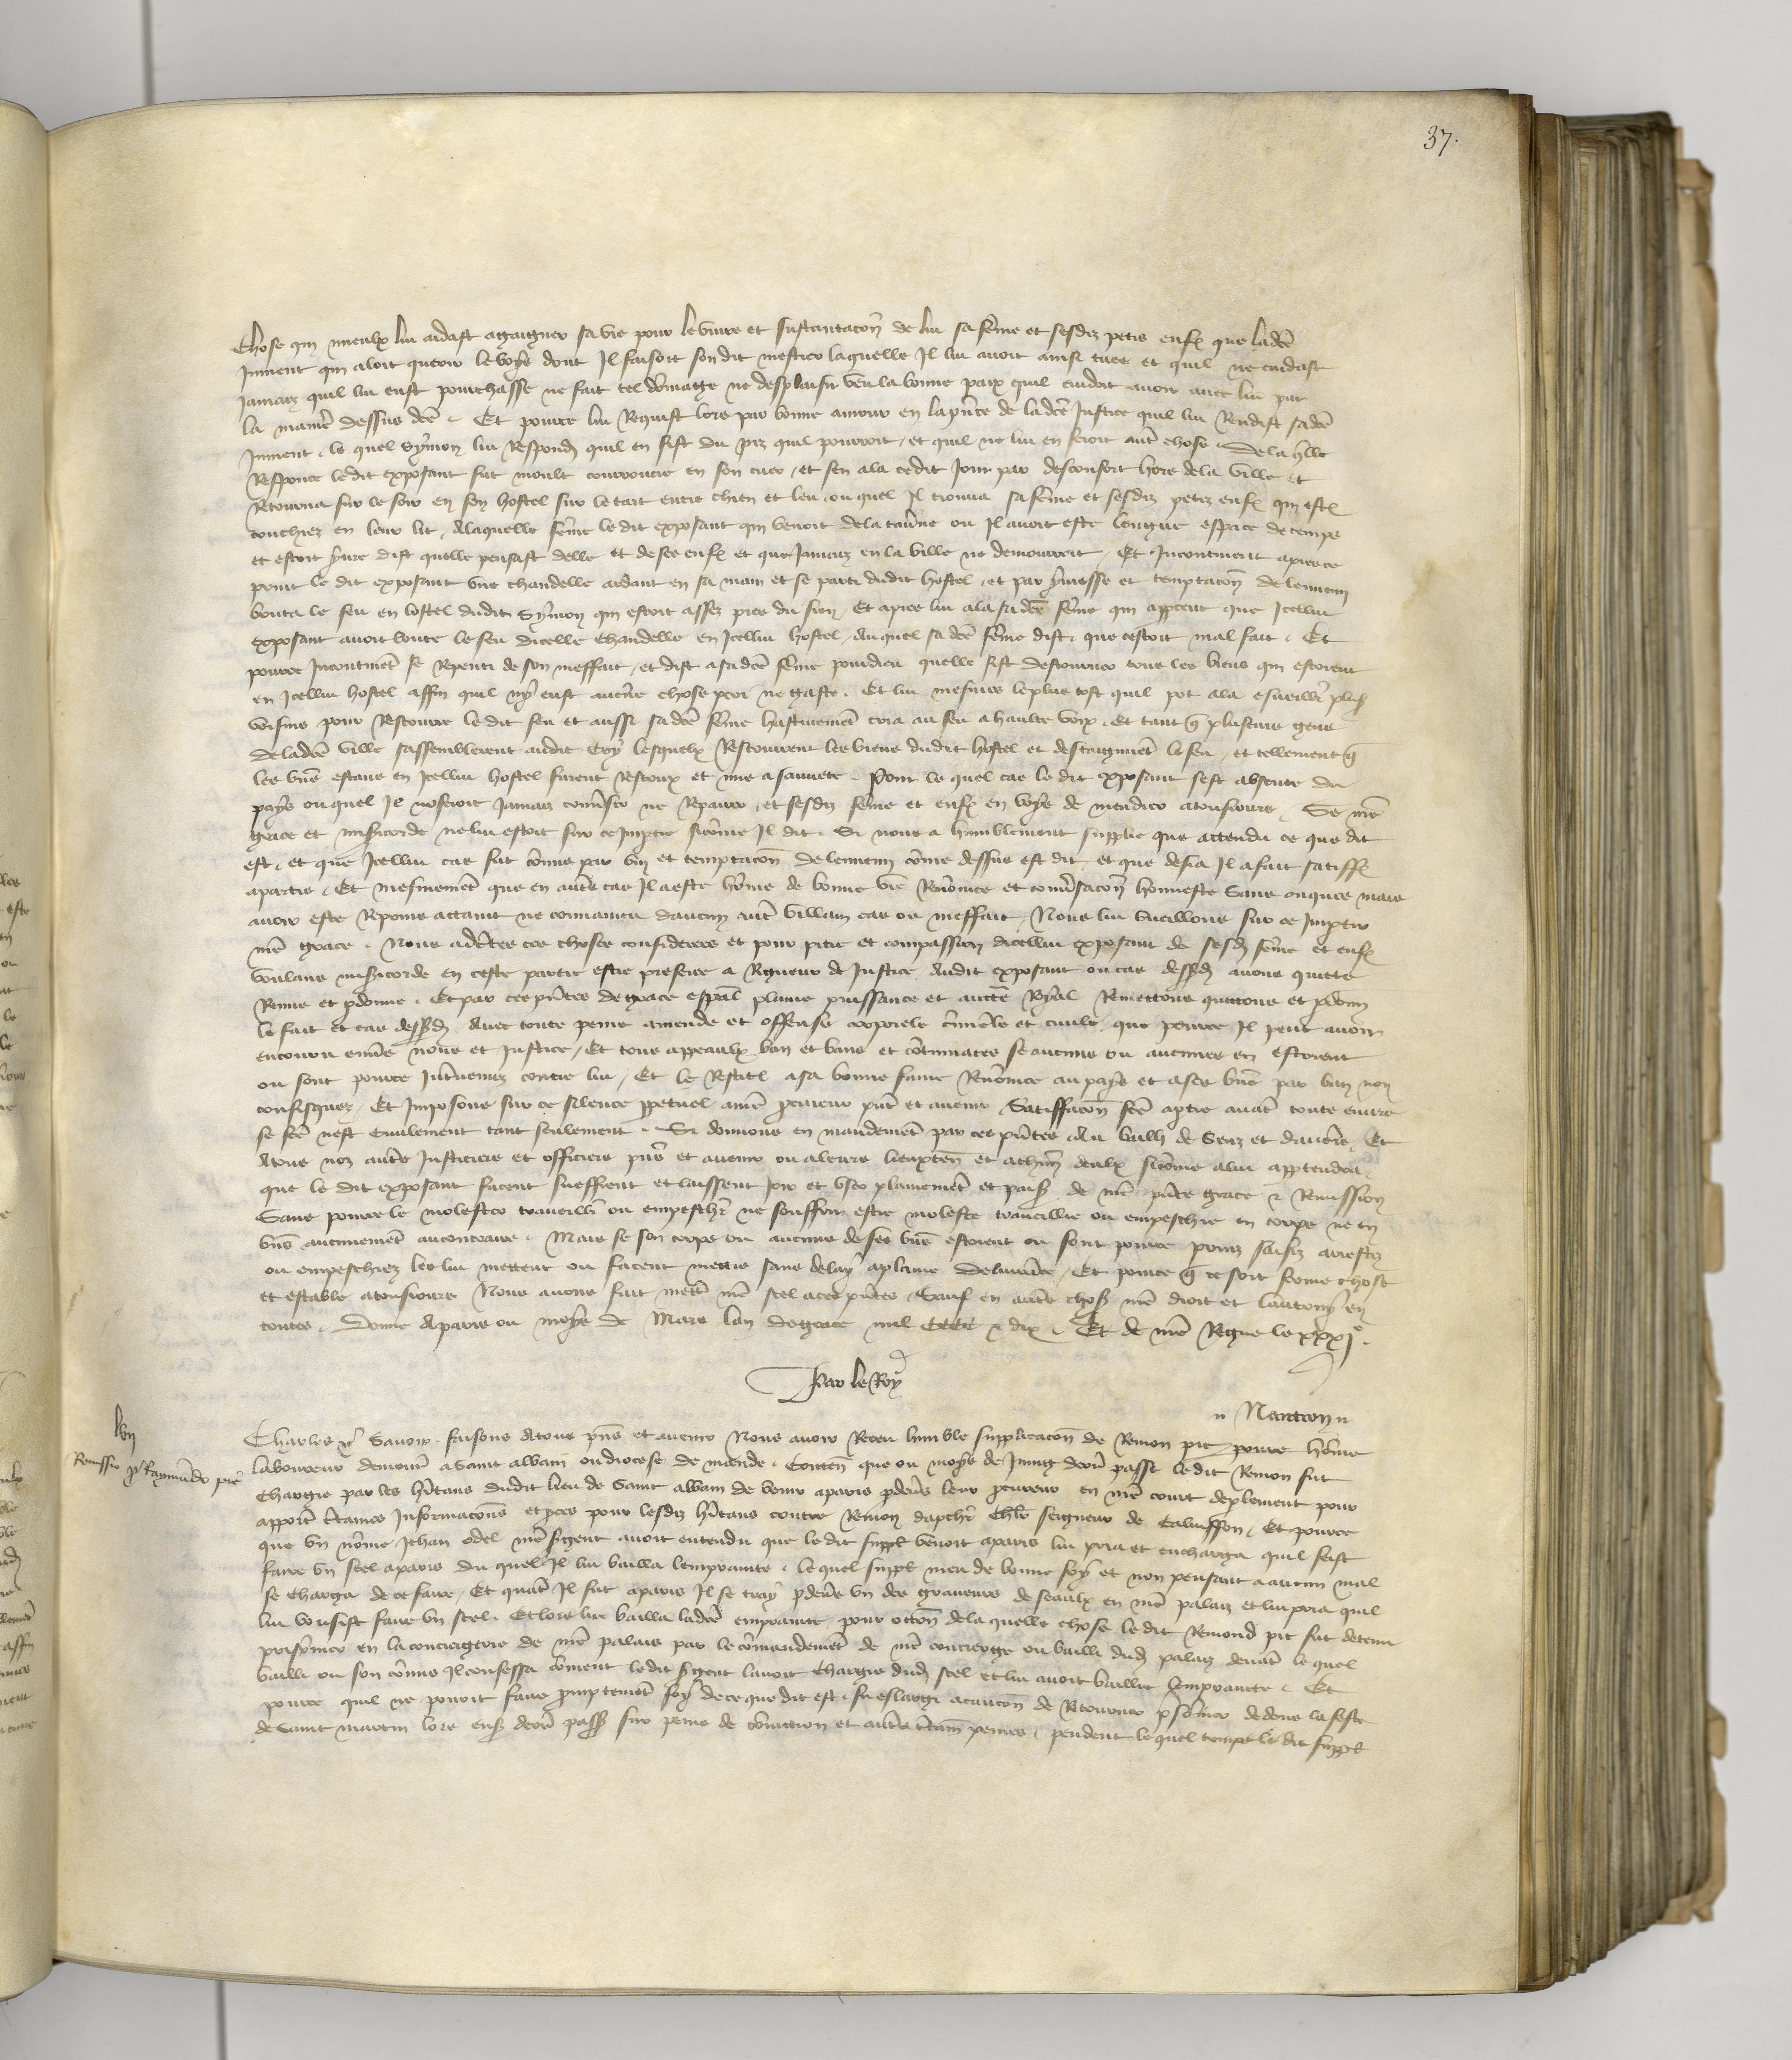 37.
Chose qui mieulx lui aidast agaigner sa vie pour le vivre et sustantacōn de lui sa fēme et sesdiz petis enfs que ladcē
Jument qui aloit querir le boys dont Il faisoit sondit mestier laquelle Il lui avoit ainsi tuee et quil ne cuidast
Jamaiz quil lui eust pourchasse ne fait tel dōmaige ne desplaisir veu la bonne paix quil cuidoit avoir avec lui par
la maniē dessus dcē. Et pource lui Requist lors par bonne amour en la pñce de ladcē Justice quil lui Rendist sadcē
Jument. le quel Symon lui Respondi quil en feist du piz quil pourroit, et quil ne lui en feroit autē chose. De la qlle
Response ledit exposant fut moult courroucie en son cuer, et sen ala cedit Jour par desconfort hors de la ville et
Retourna sur le soir en son hostel sur le tart entre chien et leu, ou quel Il trouva sa fēme et sesdiz petiz enfs qui est
couchiez en leur lit, A laquelle fēme ledit exposant qui venoit de la tavne ou Il avoit este longue espace de temps
et estoit yvre dist quelle pensast delle et de ses enfs et que Jamaiz en la ville ne demourroit, Et Incontinent apres ce
print le dit exposant une chandelle ardant en sa main et se parti dudit hostel, et par yvresse et temptacōn de lennemi
bouta le feu en lostel dudit Symon qui estoit assez pres du sien, Et apres lui ala sa dcē fēme qui apperceut que Icellui
exposant avoit boute le feu dicelle chandelle en Icellui hostel, Auquel sa dcē fēme dist que cestoit mal fait. Et
pource Incontinēt se Repenti de son meffait, et dist a sa dcē fēme pour dieu quelle fist destourner tous les biens qui estoient
en Icellui hostel affin quil ny eust aucūe chose peri ne gaste. Et lui mesmes le plus tost quil pot ala esveillr plus
voisins pour Rescourre ledit feu et aussi sa dcē fēme hastivemēt cria au feu a haulte voix, Et tant q plusieurs gens
de ladcē ville sassemblerent audit cry lesquelx Rescourrent les biens dudit hostel et destaignirēt le feu, et tellement q
les biēs estans en Icellui hostel furent Rescoux et mis a sauvete. Pour le quel cas le dit exposant sest absente du
pays ou quel Il noseroit Jamaiz convser ne Reparer, et sesdiz fēme et enfs en voye de mendier atousiours, Se nrē
grace et misicorde ne lui estoit sur ce Impartie sicōme Il dit. Si nous a humblement supplie que attendu ce que dit
est, et que Icellui cas fut cōmis par vin et temptacōn de lennemi cōme dessus est dit, et que desia Il a fait satiffs
apartie. Et mesmemēt que en autēs cas Il a este hōme de bonne vie Renōmee et convsacōn honneste Sans onques mais
avoir este Repris attaint ne convaincu daucun autē villain cas ou meffait, Nous lui vueillons sur ce Impartir
nrē grace. Nous adcētes ces choses considerees et pour pitie et compassion dicellui exposant de sesd fēme et enfs
voulans misicorde en ceste partie estre preferee a Rigueur de Justice Audit exposant ou cas dessd avons quitte
Remis et pdonne. Et par ces pñtes de grace espāl plaine puissance et auctē Royal Remettons quittons et pdonn
le fait et cas dessusd Avec toute peine amende et offense corporele crimele et civile, que pource Il peut avoir
encouru envs nous et Justice, Et tous appeaulx ban et bans et cōtumaces se aucuns ou aucunes en estoient
ou sont pource Intvenuz contre lui, Et le Restits a sa bonne fame Renōmee au pays et a ses biēs par ban non
confisquez, Et Imposons sur ce silence ppetuel a nrē procureur pñt et avenir, Satiffacōn fcē aptie avāt toute euvre
se fcē nest civilement tant seulement. Si donnons en mandemēt par ces pñtes Au baill de Senz et dauxre, Et
Atous noz autēs Justiciers et officiers pñs et avenir ou aleurs lieuxten et achūn deulx sicōme alui apptendra,
que le dit exposant facent sueffrent et laissent Joir et user plainemēt et paisi de nrē pñte grace & Remission
Sans pource le molester traveillr ou empeschr ne souffrir estre moleste travaillie ou empeschie en corps ne en
biēs aucunement aucontraire. Mais se son corps ou aucuns de ses biēs estoient ou sont pource prins saisiz arrestez
ou empeschiez les lui mettent ou facent mettre sans delay aplaine delivrāce, Et pource q ce soit ferme chose
et estable atousiours Nous avons fait mettē nrē scel aces pñtes, Sauf en autēs choses nrē droit et lautruy en
toutes. Donne Aparis ou moys de Mars lan de grace mil CCCC & dix. Et de nrē Regne le xxxjᵉ.
Par le Roy
Nantron
lvij
Remissio p Raymūdo pit
Charles &c Savoir faisons Atous pñs et avenir Nous avoir Receu humble supplicacōn de Remon pit povre hōme
laboureur demourāt a Saint alban ou diocese de mende. Conten que ou moys de Juing derrē passe ledit Remon fut
Chargie par les hītans dudit lieu de Saint alban de venir aparis pdevs leur procureur en nrē court de parlement pour
apportē ctaines Informacōns et pces pour lesdiz hītans contre Remon dapchr chlr seigneur de Calvisson, Et pource
que un nōme Jehan odel nrē sgent avoit entendu que le dit suppl venoit aparis lui pria et encharga quil feist
faire un scel aparis du quel Il lui bailla lempraintte. le quel suppl meu de bonne foy et non pensant a aucun mal
se charga de ce faire, Et quāt Il fut aparis Il se tray pdevs un des graveurs de seaulx en nrē palaiz et lui pria quil
lui voulsist faire un scel. Et lors lui bailla ladcē empraintte, pour occōn de la quelle chose le dit Remond pit fut detenu
prisonnier en la conciergerie de nrē palais par le cōmandemēt de nrē concierge ou bailli dud palaiz devāt le quel
bailli ou son cōmis Il confessa cōment ledit sgent lavoit chargie dud scel et lui avoit baillie lempraintte. Et
pource quil ne povoit faire promptemēt foy de ce que dit est, fu eslargi a caucōn de Retourner prisonnier dedens la feste
de Saint martin lors ensi derrē passe sur peine de cōviction et autēs ctain peines, pendent le quel temps le dit suppl